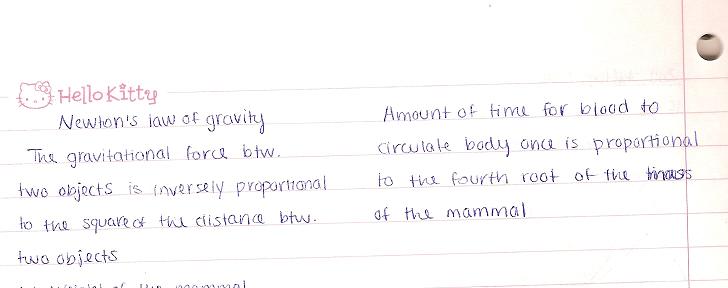 Hello Kitty
Newton's law of gravity
The gravitational force btw.
two objects is inversely proportional
to the square of the distance btw.
two objects
Amount of time for blood to
circulate body once is proportional
to the fourth root of the
of the mammal